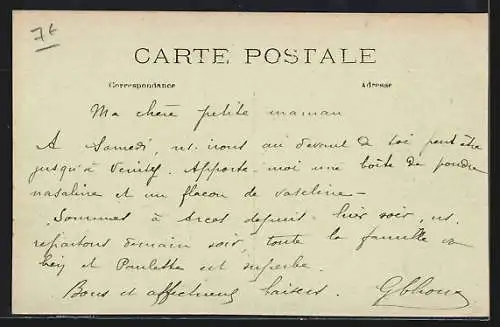 7€
CARTE POSTALE
Correspondance Adresse
Ma chère petite maman
A Samedi, ns. irons au devant de toi peut être
jusqu'à . Apporte-moi une boîte de poudre
nasaline et un flacon de vaseline -
Sommes à depuis hier soir, ns.
repartons demain soir, toute la famille va
bien et Paulette est superbe.
Bons et affectueux baisers.